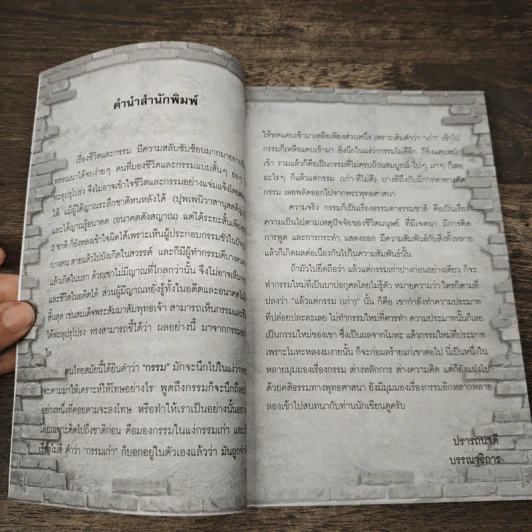 คำนำสำนักพิมพ์
เรื่องชีวิตและกรรม มีความสลับซับซ้อนมากมาย
พรรณนาได้จบง่ายๆ คนที่มองชีวิตและกรรมแบบสั้นๆ
ทะลุปรุโปร่ง จึงไม่อาจเข้าใจชีวิตและกรรมอย่างแจ่มแจ้ง
ได้ แม้ผู้ได้ญาณระลึกชาติหนหลังได้ (ปุพเพนิวาสานุสติญาณ)
และได้ญาณรู้อนาคต (อนาคตังสญาณ) แต่ได้ระยะสั้นเพียง
มี ชาติ ก็ยังหลงเข้าใจผิดได้เพราะเห็นผู้ประกอบกรรมชั่วใน
บางคน ตายแล้วไปบังเกิดในสวรรค์ และก็มีผู้ทำกรรมดีบางคน
แล้วเกิดในนรก ด้วยเขาไม่มีญาณที่ไกลกว่านั้น จึงไม่อาจเห็น
และชีวิตในอดีตได้ ส่วนผู้มีญาณหยั่งรู้ทั้งในอดีตและอนาคตไม่
สิ้นสุด เช่นสมเด็จพระสัมมาสัมพุทธเจ้า สามารถเห็นกรรมและ
ได้ทะลุปรุโปร่ง ทรงสามารถชี้ได้ว่า ผลอย่างนี้ มาจากกรรม
ใด
คนไทยสมัยนี้ได้ยินคำว่า “กรรม” มักจะนึกไปในแง่
จะตามมาให้เคราะห์ให้โทษอย่างไร พูดถึงกรรมก็จะนึกถึง
อย่างหนึ่งที่คอยตามจะลงโทษ หรือทำให้เราเป็นอย่างนั้น
โดยเฉพาะคิดไปถึงชาติก่อน คือมองกรรมในแง่กรรมเก่า และ
คำว่า “กรรมเก่า” ก็บอกอยู่ในตัวเองแล้วว่า มันถูก
ให้หดแคบเข้ามาเหลือเพียงส่วนหนึ่ง เพราะเติมคำว่า “เก่า” เข้าไป
กรรมก็เหลือแคบเข้ามา ยิ่งนึกในแง่ว่ากรรมไม่ดีอีก ก็ยิ่งแคบหนัก
เข้า รวมแล้วก็คือเป็นกรรมที่ไม่ครบถ้วนสมบูรณ์ ไปๆ มาๆ ก็เลย
อะไรๆ ก็แล้วแต่กรรม (เก่า-ที่ไม่ดี) บางทีถึงกับมีการหาทางตัด
กรรม เลยพลัดออกไปจากพระพุทธศาสนา
ความจริง กรรมก็เป็นเรื่องธรรมดาธรรมชาติ คือเป็นเรื่อง
ความเป็นไปตามเหตุปัจจัยของชีวิตมนุษย์ ที่มีเจตนา มีการคิด
การพูด และการกระทำ แสดงออก มีความสัมพันธ์กับสิ่งทั้งหลาย
แล้วก็เกิดผลต่อเนื่องกันไปในความสัมพันธ์นั้น
ถ้ามัวไปยึดถือว่า แล้วแต่กรรมเก่าปางก่อนอย่างเดียว ก็จะ
ทำกรรมใหม่ที่เป็นบาปอกุศลโดยไม่รู้ตัว หมายความว่า ใครก็ตามที่
ปลงว่า “แล้วแต่กรรม (เก่า)” นั้น ก็คือ เขากำลังทำความประมาท
ที่ปล่อยปละละเลย ไม่ทำกรรมใหม่ที่ควรทำ ความประมาทนั้นก็เลย
เป็นกรรมใหม่ของเขา ซึ่งเป็นผลจากโมหะ แล้วกรรมใหม่ที่ประมาท
เพราะโมหะหลงงมงายนั้น ก็จะก่อผลร้ายแก่เขาต่อไป นี่เป็นหนึ่งใน
หลายมุมมองเรื่องกรรม ต่างหลักการ ต่างความคิด แต่ก็ยังแฝงไป
ด้วยคติธรรมทางพุทธศาสนา ยังมีมุมมองเรื่องกรรมอีกหลากหลาย
ลองเข้าไปสนทนากับท่านนักเขียนดูครับ
ปรารถนาดี
บรรณาธิการ